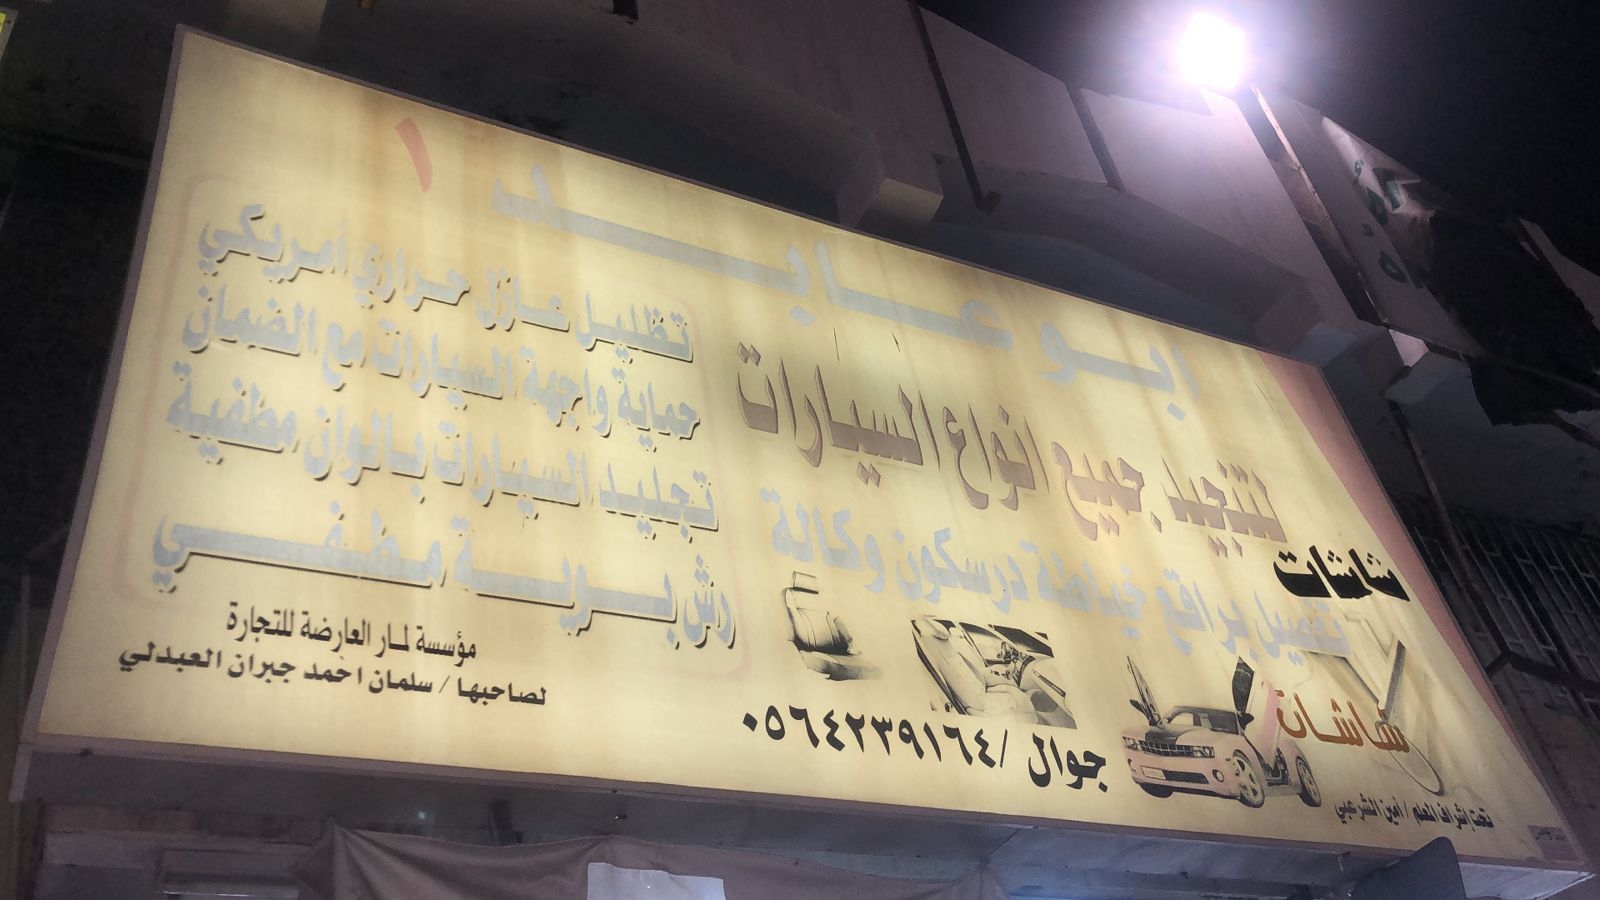 ابو عابد ١
لتنجيد جميع انواع السيارات
تفصيل براقع خياطة درسكون وكالة
شاشات
شاشات
جوال / ٠٥٦٤٢٣٩١٦٤
تحت إشراف المعلم / أمين الشرعبي
تظليل عازل حراري أمريكي
حماية واجهة السيارات مع الضمان
تجليد السيارات بالوان مطفية
رش بوية مطفي
مؤسسة لمار العارضة للتجارة
لصاحبها / سلمان احمد جبران العبدلي